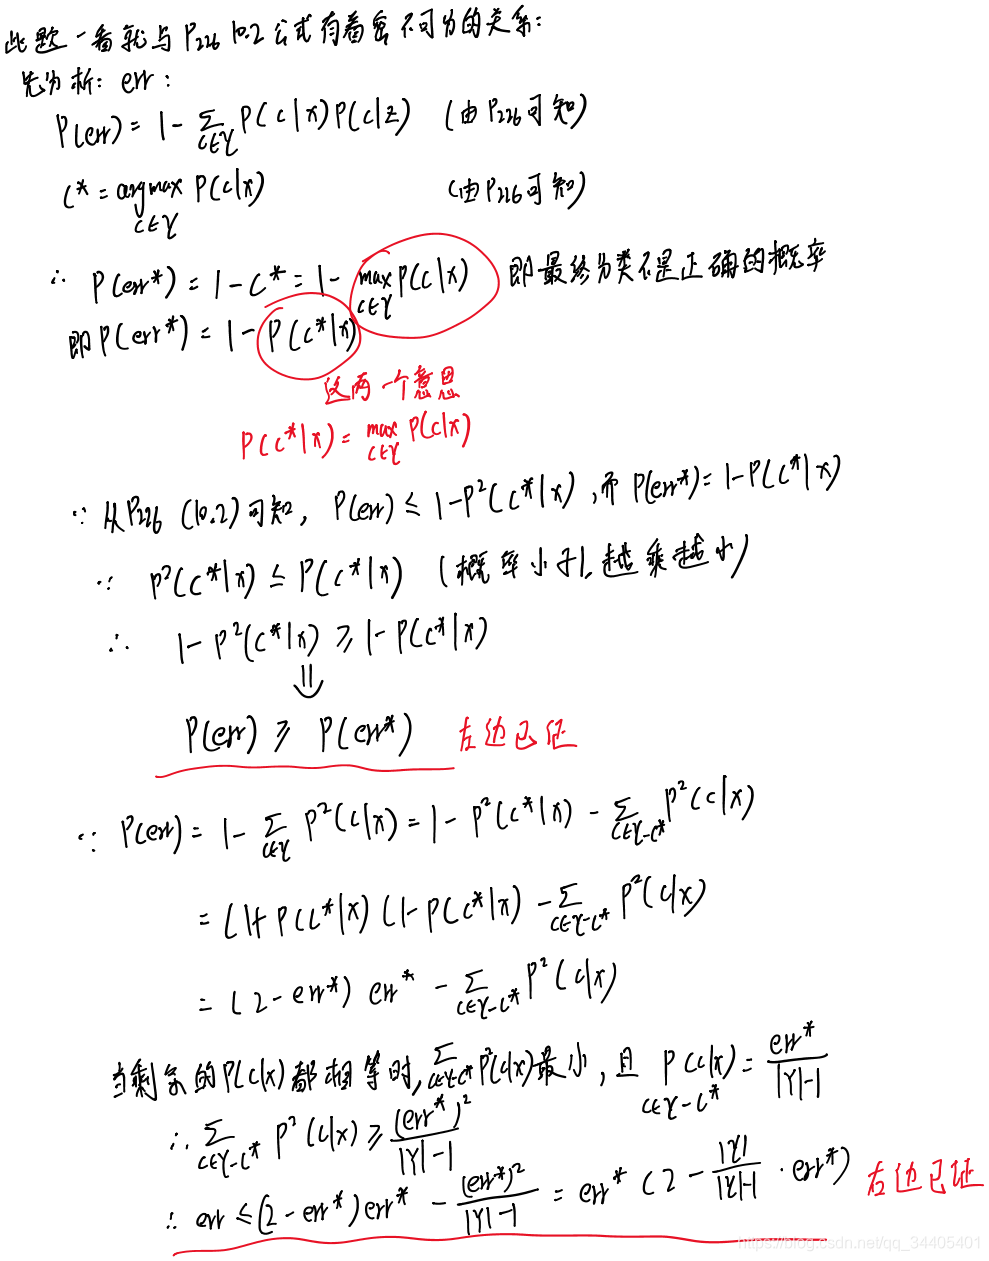 此题一看就与P₂₂₆ 10.2公式有着密不可分的关系:
先分析: err:
P(err) = 1 - ∑_{c∈Y} P(c|x)P(c|z) (由P₂₂₆可知)
c* = argmax_{c∈Y} P(c|x) (由P₂₂₆可知)
∴ P(err*) = 1 - c* = 1 - max_{c∈Y} P(c|x) 即最终分类不是正确的概率
即P(err*) = 1 - P(c*|x)
这两一个意思
P(c*|x) = max_{c∈Y} P(c|x)
∵ 从P₂₂₆ (10.2)可知, P(err) ≤ 1-P²(c*|x), 而 P(err*) = 1-P(c*|x)
∵ P²(c*|x) ≤ P(c*|x) (概率小于1,越乘越小)
∴ 1-P²(c*|x) ≥ 1-P(c*|x)
⇓
P(err) ≥ P(err*) 左边已证
∵ P(err) = 1 - ∑_{c∈Y} P²(c|x) = 1 - P²(c*|x) - ∑_{c∈Y-c*} P²(c|x)
= (1+P(c*|x)(1-P(c*|x) - ∑_{c∈Y-c*} P²(c|x)
= (2-err*) err* - ∑_{c∈Y-c*} P²(c|x)
当剩余的P(c|x)都相等时, ∑_{c∈Y-c*} P²(c|x)最小, 且 P(c|x)_{c∈Y-c*} = err*/(|Y|-1)
∴ ∑_{c∈Y-c*} P²(c|x) ≥ (err*)²/(|Y|-1)
∴ err ≤ (2-err*)err* - (err*)²/(|Y|-1) = err* (2 - |Y|/(|Y|-1) · err*) 右边已证
https://blog.csdn.net/qq_34405401